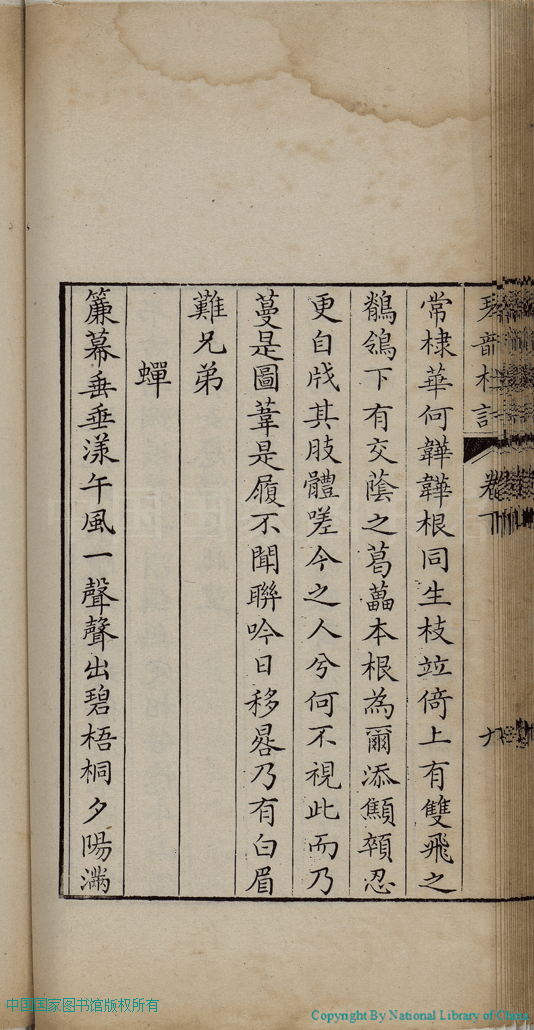 卷下
常棣華何韡韡根同生枝竝倚上有雙飛之
鶺鴒下有交蔭之葛藟本根為爾添顦顇忍
更自戕其肢體嗟今之人兮何不視此而乃
蔓是圖葦是履不聞聯吟日移晷乃有白眉
難兄弟
蟬
簾幕垂垂漾午風一聲聲出碧梧桐夕陽滿
中国国家图书馆版权所有
Copyright By National Library of China